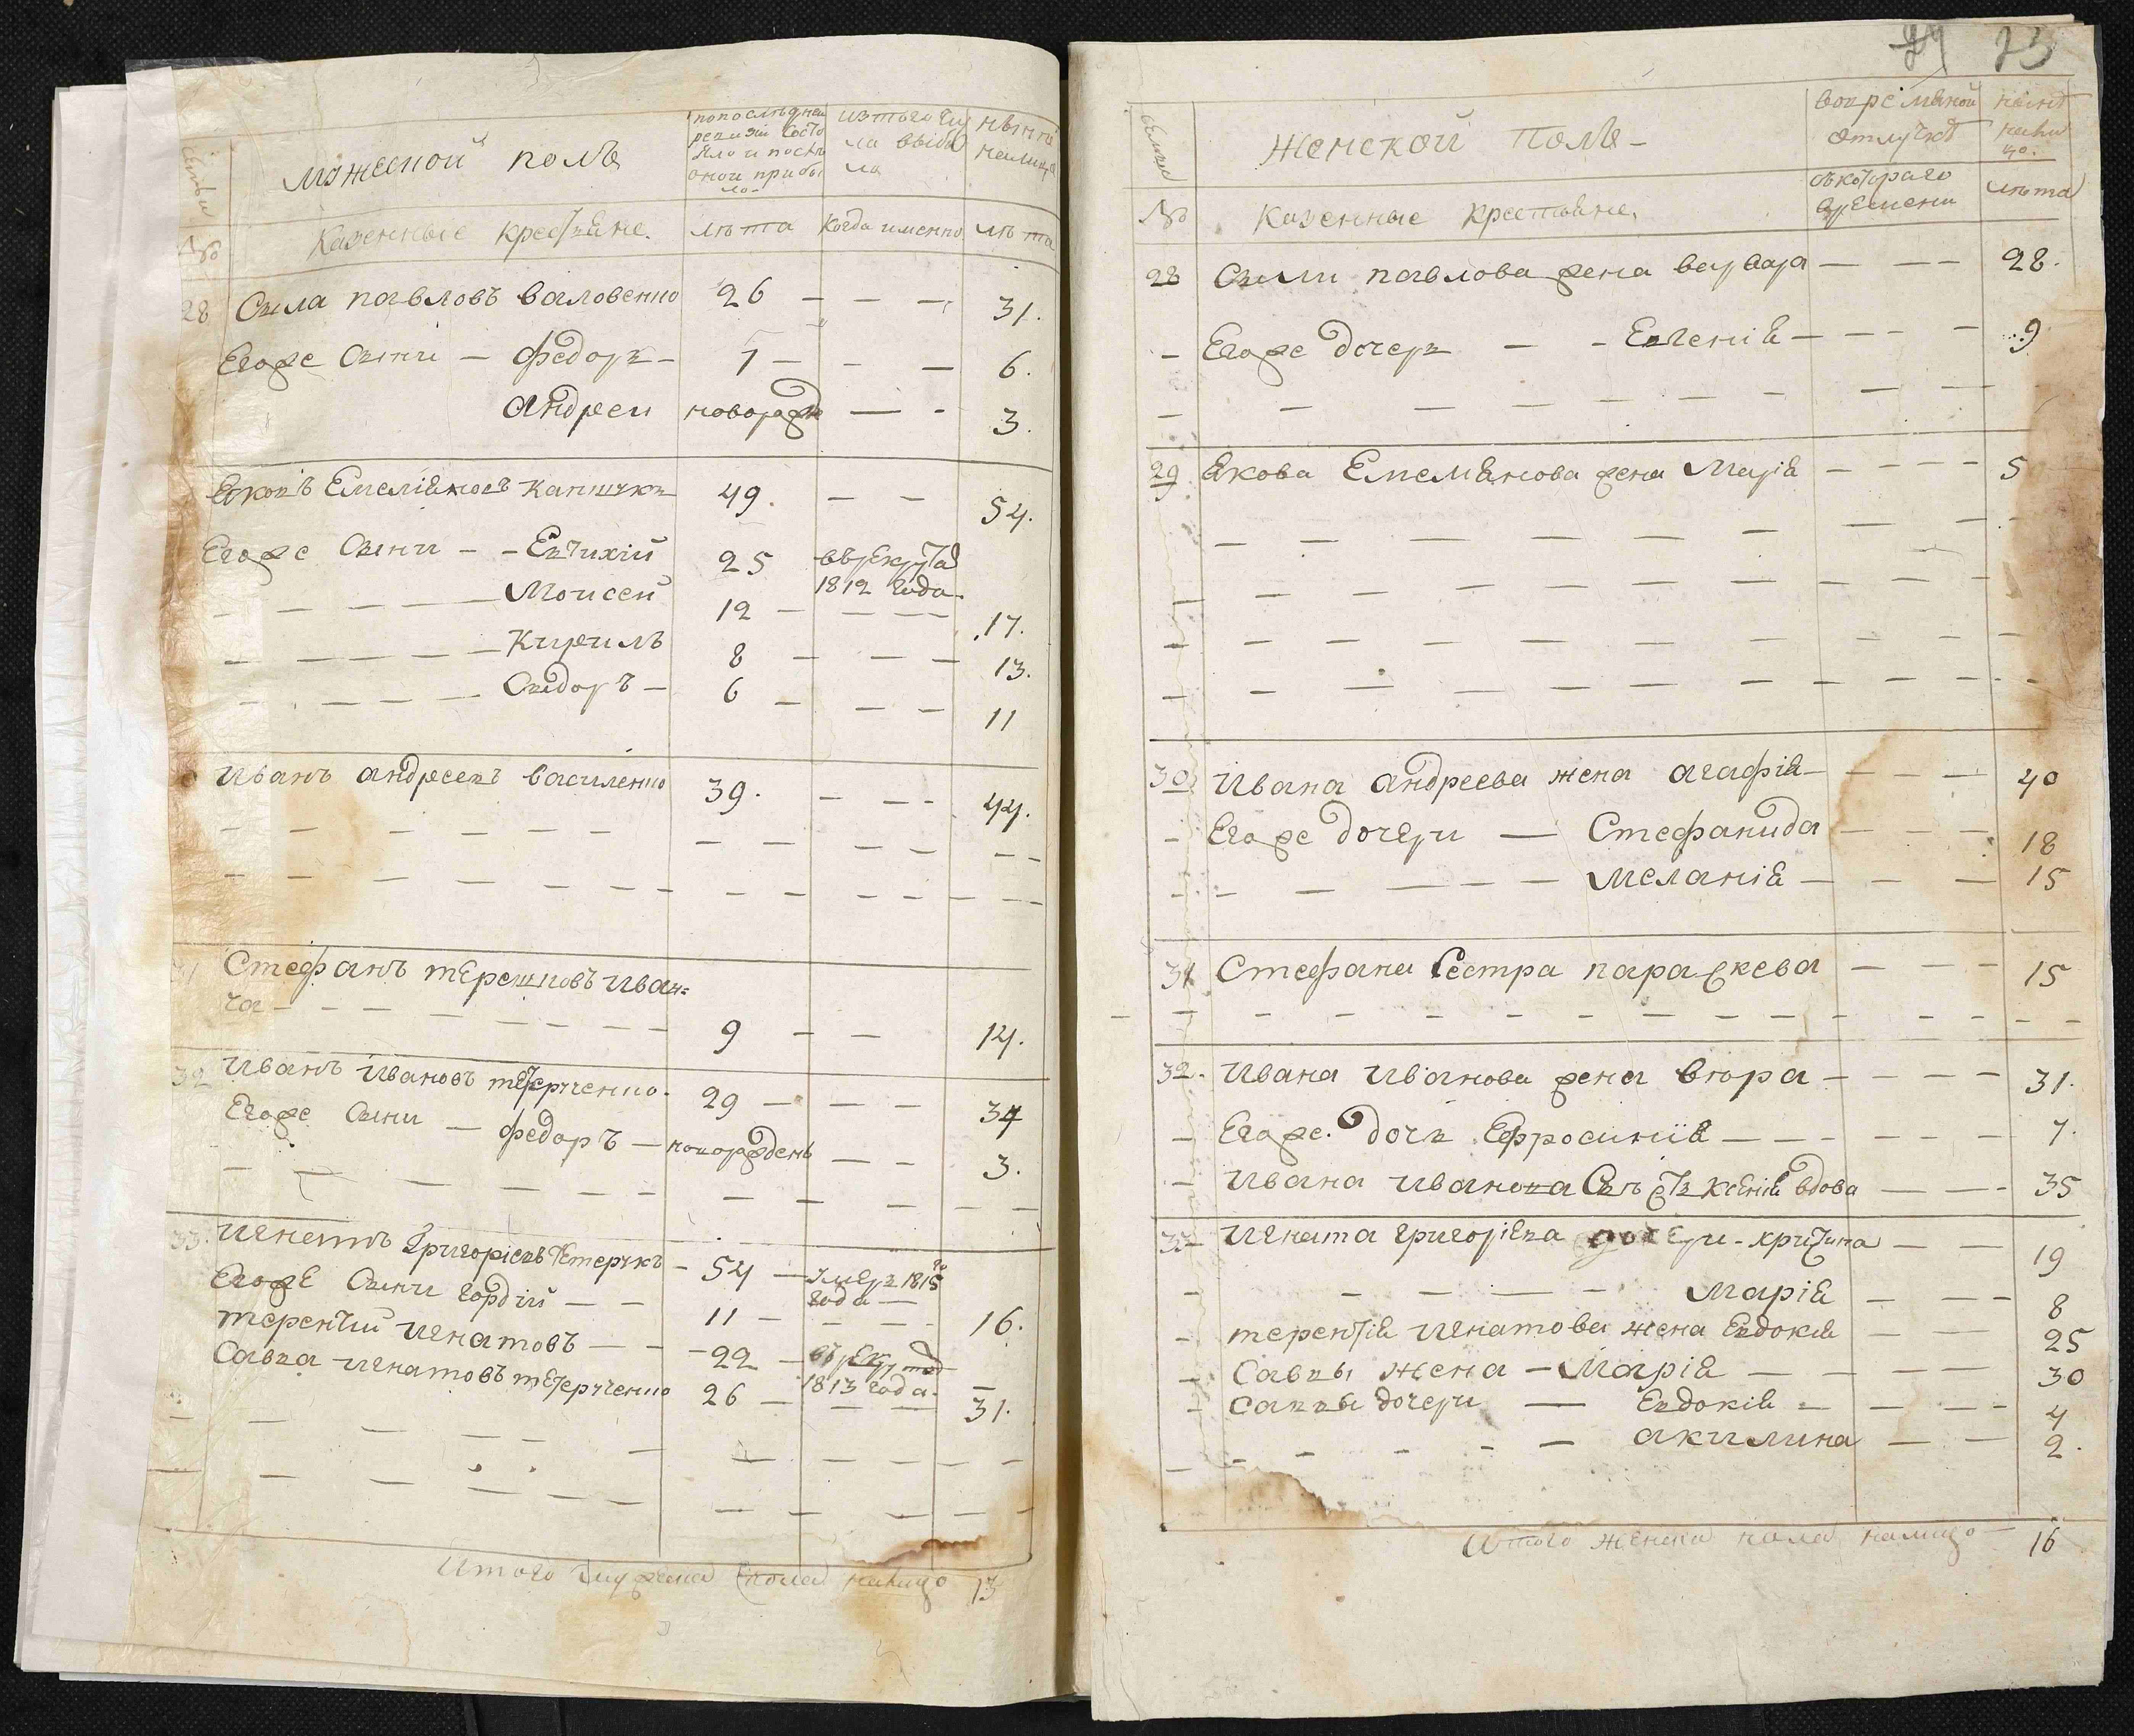 мужеской полъ
по последней
ревизіи состо
яло и после
оной прибы
ло
изтого чи
ла выбы
ло
нынѣ
налицо
семьи
№
Казенные крестьяне.
лѣта
Когда именно
лѣта
28 Сыла павловъ валовенко 26 — — — 31.
Егоже Сыни — Федоръ — 1 — — — 6.
Андреи новорожд — - 3.
Яковъ Емеліяновъ Капшукъ 49. — — 54.
Егоже Сыни — — Евтихій 25 въ рекрута
1812 года.
— — — — — Моисей 12 — — — 17.
— — — — — Кирилъ 8 — — — 13.
— — — — — Сидоръ — 6 — — — 11
Иванъ андреевъ василенко 39. — — - 44.
31 Стефанъ терешковъ Иван=
ча — — — — — — — 9 — — 14.
32 Иванъ Ивановъ тетерученко. 29 — — — 34
Егоже Сыни — федоръ — новорожденъ — — 3.
33. Игнатъ Григоріевъ тетерукъ — 54 — умеръ 1815
года —
Егоже Сыни гордій — — 11 — — — 16.
терентій Игнатовъ — — 22 — въ рекрута
1813 года.
Савва Игнатовъ тетерученко 26 — — — 31.
Итого мужеска пола налицо 13
24 23
семьи
№
Женской Полъ —
Казенные крестьяне.
во временой
отлучкѣ
съ котораго
времени
нынѣ
нали
цо.
лѣта
28 Сыли павлова жена варвара — — — 28.
— Егоже дочеръ — - Евгенія — — — — 9
29 Якова Емельянова жена Марія — — — — 5
30 Ивана андреева жена агафія — — — — 40
- Егоже дочери — Стефанида — — — 18
- - — — — — Меланія — — — 15
31 Стефана Сестра параскева — — — 15
32. Ивана Иванова жена вюра — — — — 31.
— Егоже. дочъ Ефросинія — — — — — — 7.
— Ивана Иванова Сестъ Ксенія вдова — — - 35
33 Игната григоріева дочери - христина — — 19
- - — — — - Марія — — — 8
- терентія Игнатова жена Евдокія — — 25
- Саввы жена — Марія — — — — 30
- Саввы дочери — Евдокія — — — - 4
— - - - - — акилина — — 2.
Итого женска пола налицо — 16